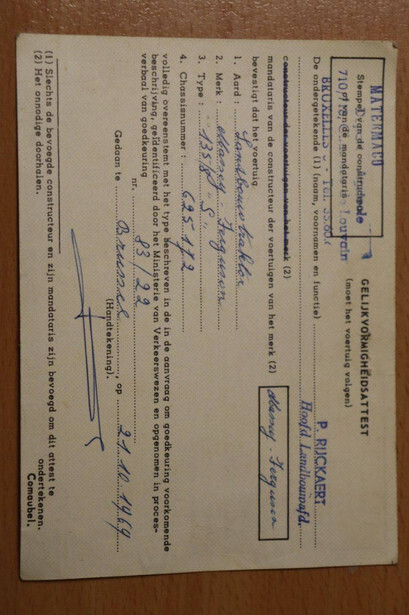 MATERMACO
Stempel van de constructeur
of van de mandataris Louvain
BRUXELLES
GELIJKVORMIGHEIDSATTEST
(moet het voertuig volgen)
P. RIJCKAERT
De ondergetekende (1) (naam, voornamen en functie) Hoofd Landbouwafd.
constructeur der voertuigen van het merk (2)
mandataris van de constructeur der voertuigen van het merk (2) Massey-Ferguson
bevestigt dat het voertuig
1. Aard : Landbouwtraktor
2. Merk : Massey Ferguson
3. Type : 135/8 S.
4. Chassisnummer : 625172
volledig overeenstemt met het type beschreven in de in de aanvraag om goedkeuring voorkomende
beschrijving, geïdentificeerd door het Ministerie van Verkeerswezen en opgenomen in proces-
verbaal van goedkeuring nr. 83/22
Gedaan te Brussel, op 21.10.1969
(Handtekening),
(1) Slechts de bevoegde constructeur en zijn mandataris zijn bevoegd om dit attest te
ondertekenen.
(2) Het onnodige doorhalen.
Comaubel.